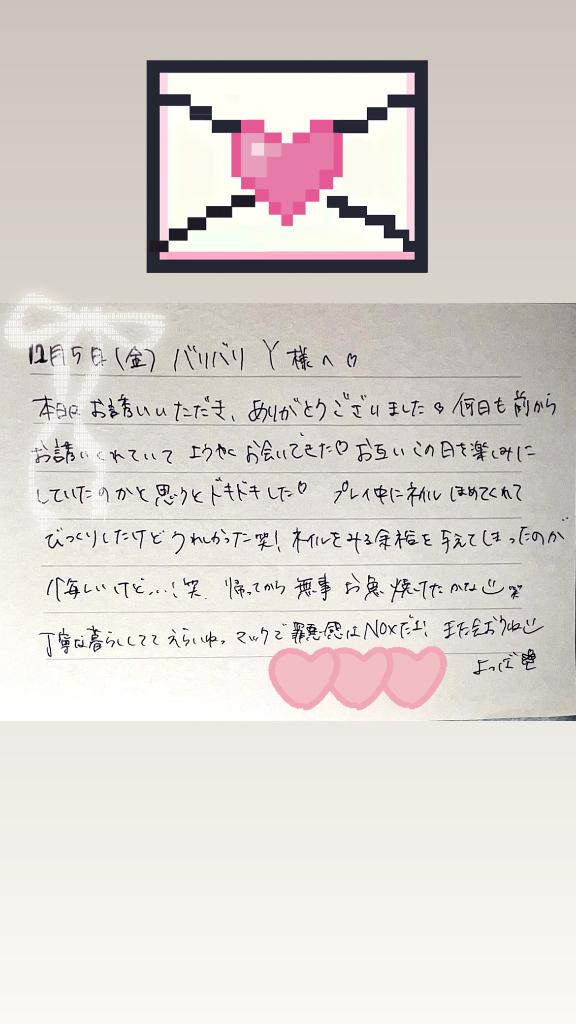 12月5日(金) バリバリ Y様へ♡
本日は お誘いいただき、ありがとうございました♡ 何日も前から
お誘いくれていて ようやく お会いできた♡ お互いこの日を楽しみに
していたのかと思うとドキドキした♡ プレイ中にネイルほめてくれて
びっくりしたけどうれしかった笑! ネイルをみる余裕を与えてしまったのが
悔しいけど...!笑 帰ってから 無事 お魚 焼けたかな 笑
丁寧な暮らししてて えらいね。マックで罪悪感はNOxだよ! また会おうね
よつば